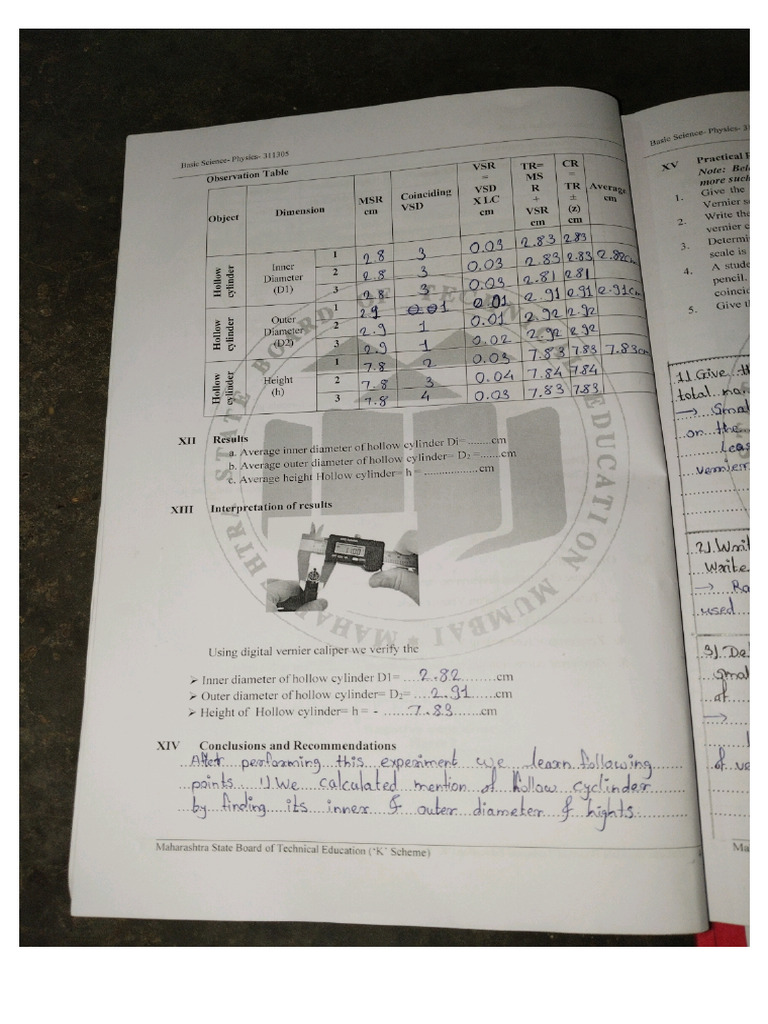 Basic Science- Physics- 311305
Observation Table
Object Dimension MSR cm Coinciding VSD VSR = VSD X LC cm TR= MS R + VSR cm CR = TR ± (z) cm Average cm
Hollow cylinder Inner Diameter (D1) 1 2.8 3 0.03 2.83 2.83
2 2.8 3 0.03 2.83 2.83 2.82cm
3 2.8 3 0.03 2.81 2.81
Hollow cylinder Outer Diameter (D2) 1 2.9 1 0.01 2.91 2.91 2.91cm
2 2.9 1 0.01 2.92 2.92
3 2.9 1 0.02 2.92 2.92
Hollow cylinder Height (h) 1 7.8 2 0.03 7.83 7.83 7.83cm
2 7.8 3 0.04 7.84 7.84
3 7.8 4 0.03 7.83 7.83
XII Results
a. Average inner diameter of hollow cylinder Di= ........cm
b. Average outer diameter of hollow cylinder= D₂ =......cm
c. Average height Hollow cylinder= h = .................cm
XIII Interpretation of results
Using digital vernier caliper we verify the
➤ Inner diameter of hollow cylinder D1= ....2.82.......cm
➤ Outer diameter of hollow cylinder= D₂= ....2.91......cm
➤ Height of Hollow cylinder= h = - .....7.83.......cm
XIV Conclusions and Recommendations
After performing this experiment we learn following
points 1).We calculated mention of hollow cyclinder
by finding its inner & outer diameter & hights.
Maharashtra State Board of Technical Education ('K' Scheme)
MAHARASHTR STATE BOARD OF TECHNICAL EDUCATION MUMBAI
Basic Science- Physics- 31
XV Practical
Note:
more such
1. Give the
Vernier
2. Write the
vernier
3.
scale is
4. A stude
pencil.
coincid
5. Give t
1). Give
total
→ Smal
on the
leas
vernier
2). Writ
Write
→
used
3). De
smal
of
→
of ve
Ma